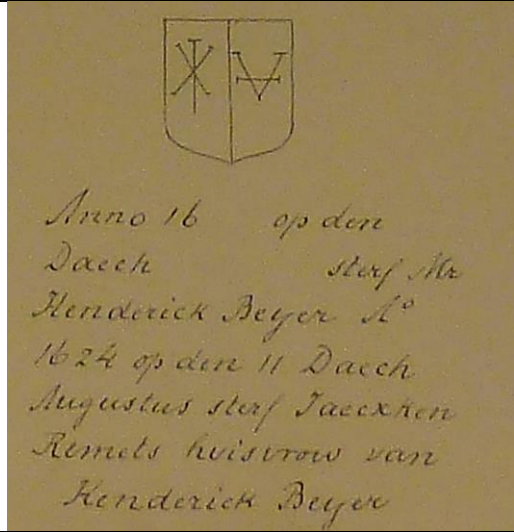 Anno 16 op den
Daech sterf Mr
Henderick Beyer A°
1624 op den 11 Daech
Augustus sterf Jaecxken
Remets huisvrow van
Henderick Beyer